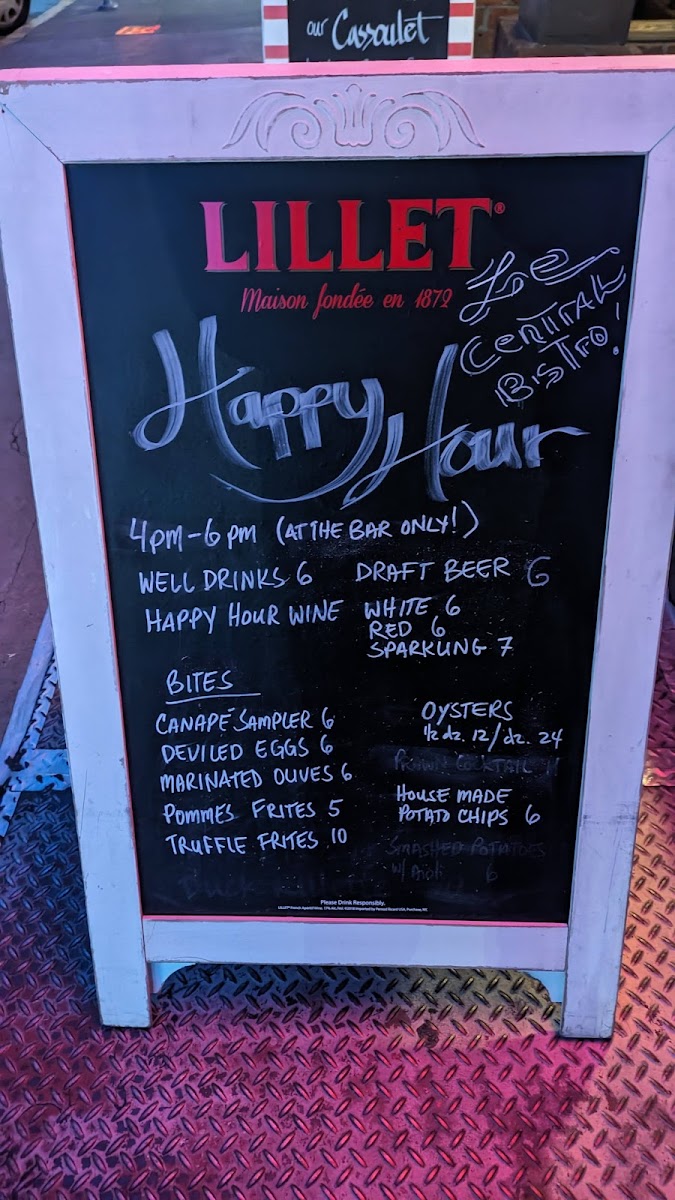 our Cassoulet
LILLET®
Maison fondée en 1872
Le
Central
Bistro!
Happy Hour
4pm-6pm (AT THE BAR ONLY!)
WELL DRINKS 6 DRAFT BEER 6
HAPPY HOUR WINE WHITE 6
RED 6
SPARKLING 7
BITES
CANAPÉ SAMPLER 6
DEVILED EGGS 6
MARINATED OLIVES 6
POMMES FRITES 5
TRUFFLE FRITES 10
OYSTERS
1/2 dz. 12/dz. 24
PRAWN COCKTAIL 11
HOUSE MADE
POTATO CHIPS 6
SMASHED POTATOES
w/ Aioli 6
Please Drink Responsibly.